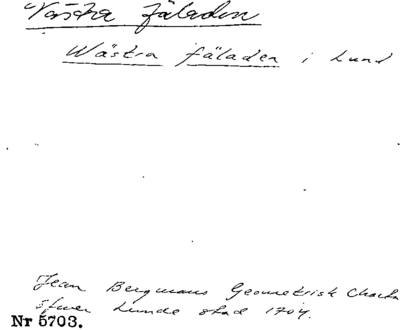 Västra fäladen
Wästra fäladen i Lund
Jean Bergmans Geometrisk Charta
öfwer Lunde stad 1704.
Nr 5703.